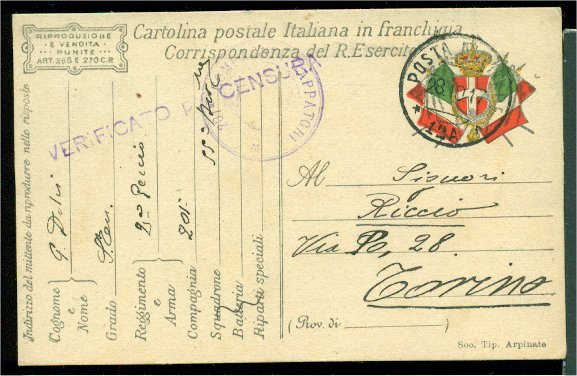 RIPRODUZIONE
E VENDITA
PUNITE
ART. 268 E 270 C.P.
Cartolina postale Italiana in franchigia
Corrispondenza del R. Esercito
POSTA
28
12A
VERIFICATO PER CENSURA
ZAPPATORI
Indirizzo del mittente da riprodurre nelle risposte
Cognome e Nome
Grado
Reggimento e Arma
Compagnia 201
Squadrone
Batteria
Riparti speciali
Al Signori
Riccio
Via Po, 28
Torino
(Prov. di )
Soc. Tip. Arpinate